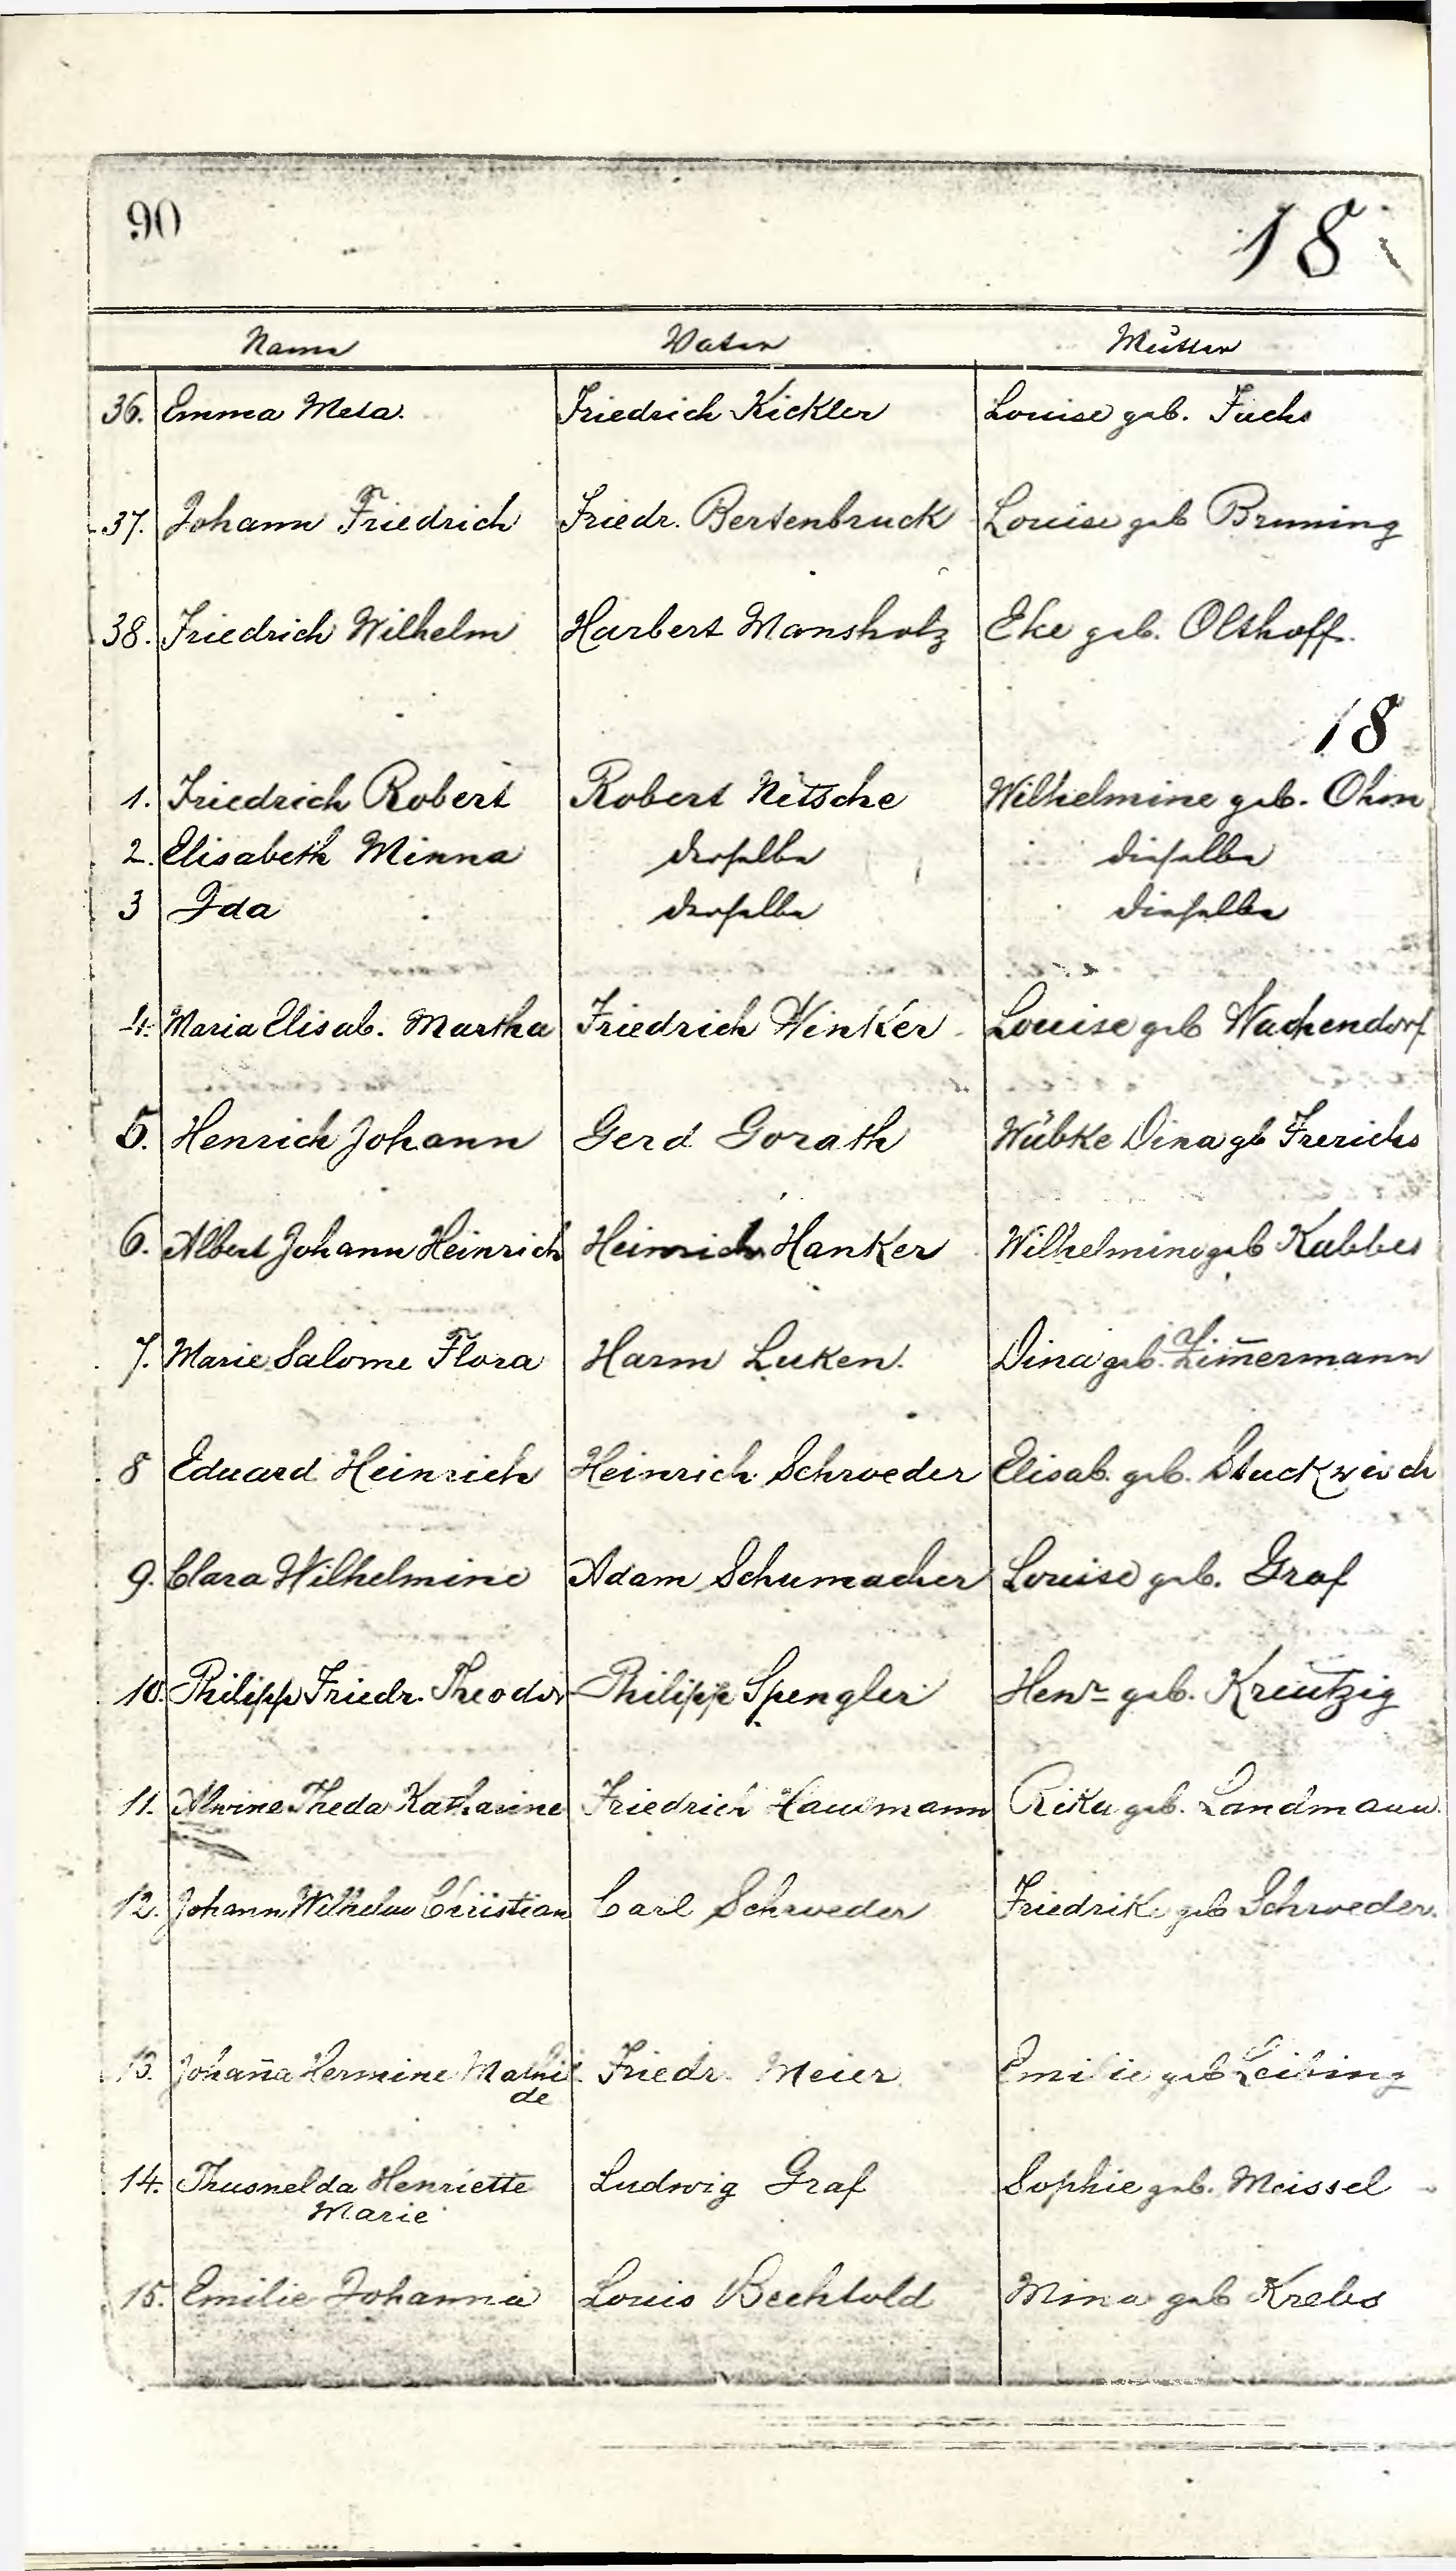 90
18
Name Vater Mutter
36. Emma Meta. Friedrich Kickler Louise geb. Fuchs
37. Johann Friedrich Friedr. Bertenbruck Louise geb Bruning
38. Friedrich Wilhelm Harbert Mansholz Eke geb. Olthoff.
18
1. Friedrich Robert Robert Nitsche Wilhelmine geb. Ohm
2. Elisabeth Minna derselbe dieselbe
3 Ida derselbe dieselbe
4. Maria Elisab. Martha Friedrich Winker Louise geb Wachendorf
5. Henrich Johann Gerd Gorath Wübke Dina gb Frerichs
6. Albert Johann Heinrich Heinrich Hanker Wilhelmine geb Kubbes
7. Marie Salome Flora Harm Luken. Dina geb. Zim̅ermann
8 Eduard Heinrich Heinrich Schroeder Elisab. geb. Stuckwisch
9. Clara Wilhelmine Adam Schumacher Louise geb. Graf
10. Philipp Friedr. Theodor Philipp Spengler Henr geb. Kreutzig
11. Alwine Theda Katharine Friedrich Hausmann Rika geb. Landmann.
12. Johann Wilhelm Christian Carl Schroeder Friedrike geb Schroeder.
13. Johan̅a Hermine Mathil Friedr. Meier Emilie geb Leibing
de
14. Thusnelda Henriette Ludwig Graf Sophie geb. Meissel
Marie
15. Emilie Johanna Louis Bechtold Mina geb Krebs